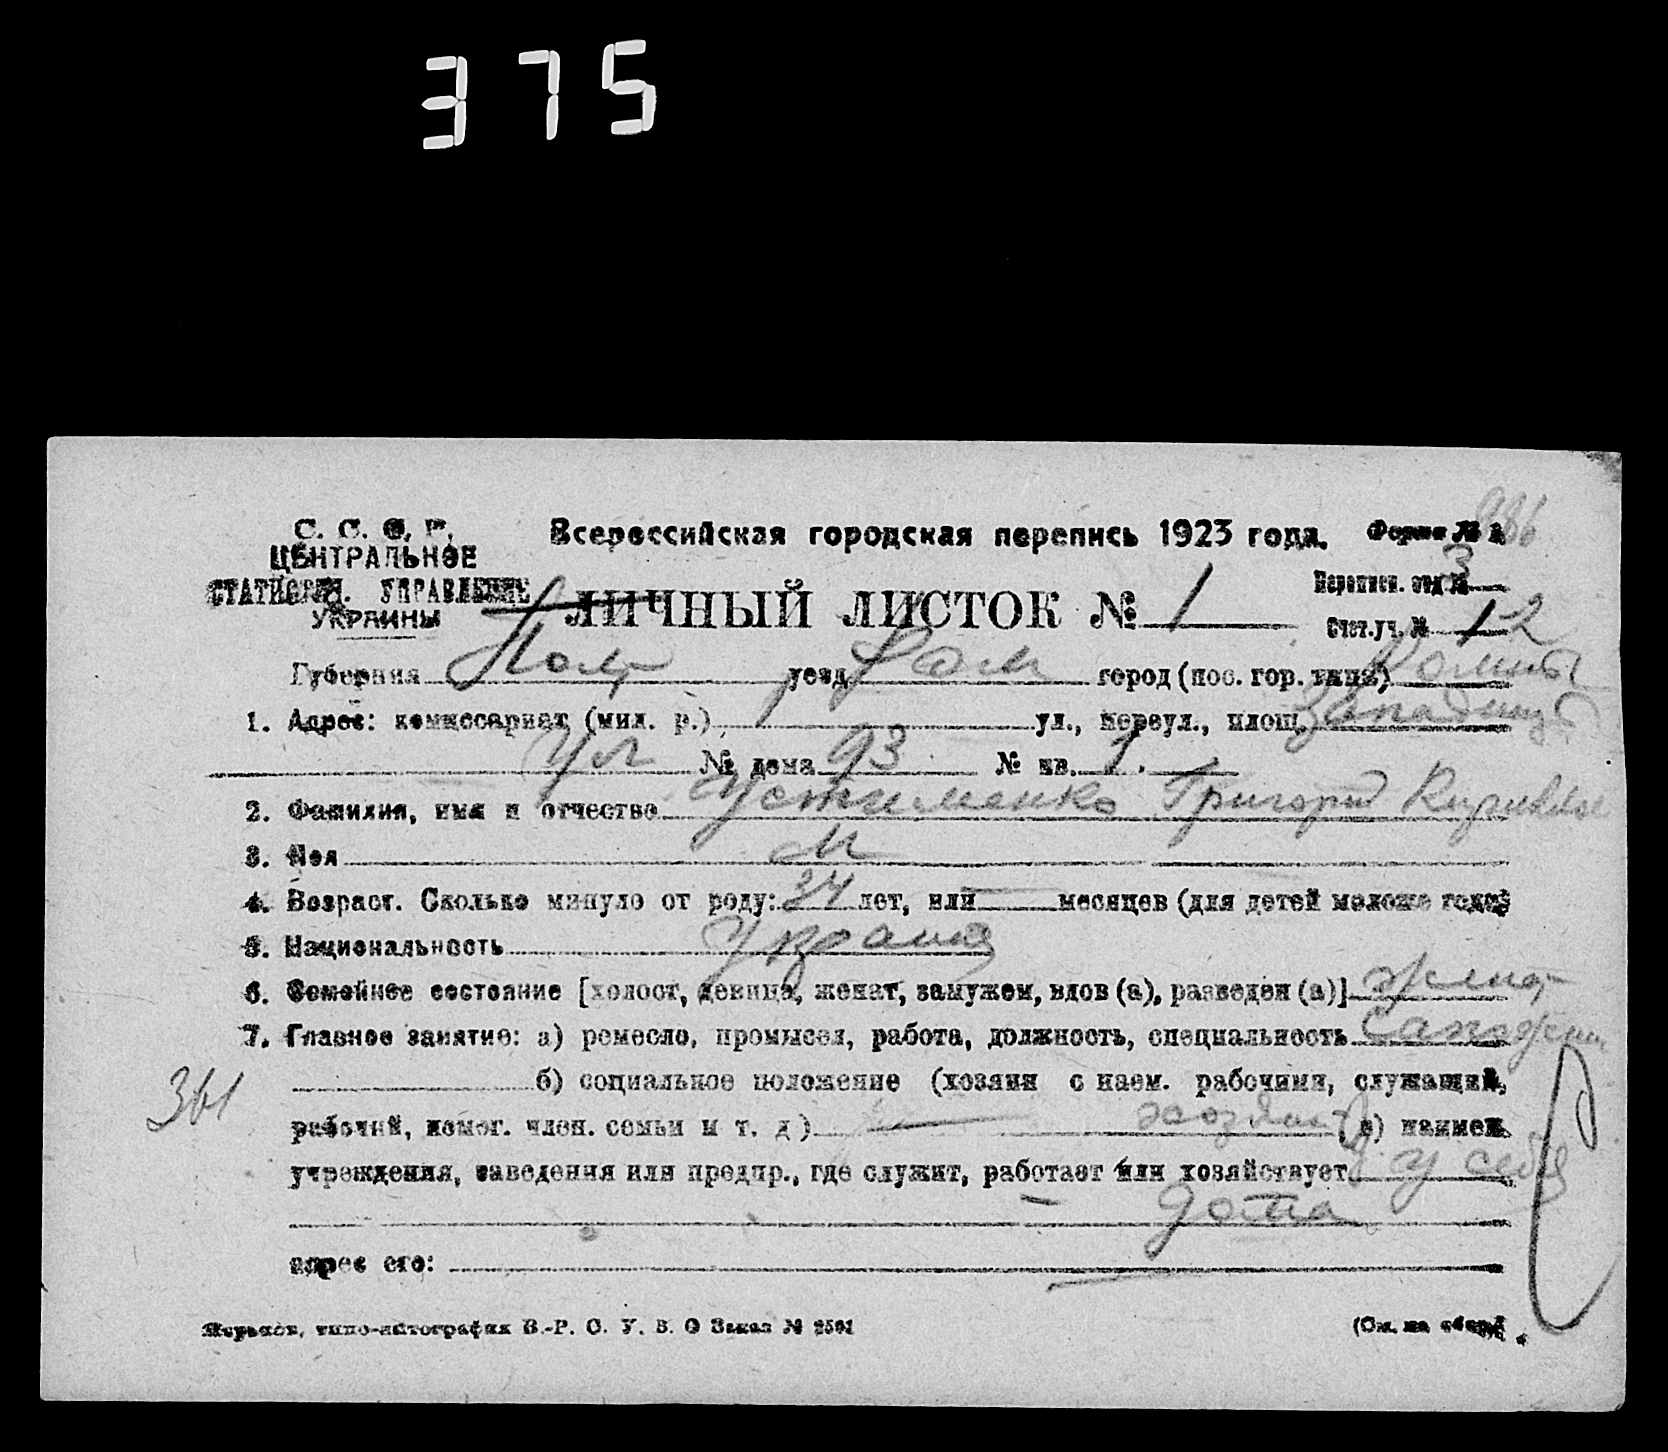 375
С. С. С. Р.
ЦЕНТРАЛЬНОЕ
СТАТИСТИЧ. УПРАВЛЕНИЕ
УКРАИНЫ
Всероссийская городская перепись 1923 года.
Форма № А
986
ЛИЧНЫЙ ЛИСТОК № 1
Переписн. отд № 3
Счет. уч. № 12
Губерния Полт уезд Ром город (пос. гор. типа) Ромны
1. Адрес: комиссариат (мил. р.) ул., переул., площ. Западинц
ул № дома 93 № кв. 1.
2. Фамилия, имя и отчество Устименко Григорий
3. Пол М
4. Возраст. Сколько минуло от роду: 34 лет, или — месяцев (для детей моложе года)
5. Национальность Украин
6. Семейное состояние [холост, девица, женат, замужем, вдов (а), разведен (а)] женат
7. Главное занятие: а) ремесло, промысел, работа, должность, специальность Сапожник
б) социальное положение (хозяин с наем. рабочими, служащий,
361
рабочий, помог. член. семьи и т. д) хозяин в) наимен.
учреждения, заведения или предпр., где служит, работает или хозяйствует у себя
дома
адрес его:
Харьков, типо-литография В.-Р. С. У. В. О Заказ № 2561
(См. на обор.)